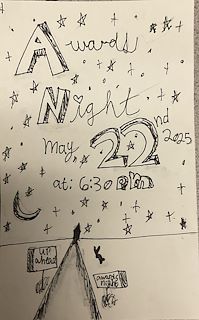 Awards
Night
May, 22nd 2025
at: 6:30 pm
up
ahead
awards
night